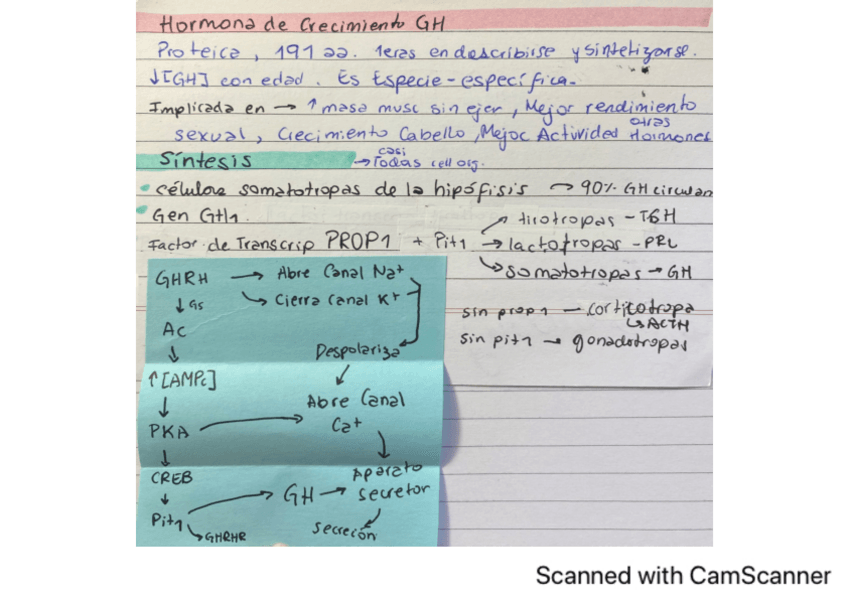 Hormona de Crecimiento GH
Proteica, 191 aa. 1eras en describirse y sintetizarse.
↓[GH] con edad. Es Especie-específica.
Implicada en → ↑ masa musc sin ejer, Mejor rendimiento
sexual, Crecimiento Cabello, Mejor Actividad otras Hormones
Síntesis
→ casi Todas cell org.
células somatotropas de la hipófisis → 90% GH circulan
Gen GH1
Factor de Transcrip PROP1 + Pit1
→ tirotropas - TSH
→ lactotropas - PRL
→ somatotropas → GH
sin prop1 — corticotropa
↳ ACTH
sin pit1 → gonadotropas
GHRH → Abre Canal Na+
↳ Cierra canal K+
↓ Gs
Ac
Despolariza
↓
↑[AMPc]
Abre Canal
Ca+
PKA
CREB
Aparato
secretor
GH →
Pit1
↳ GHRHR
secreción
Scanned with CamScanner